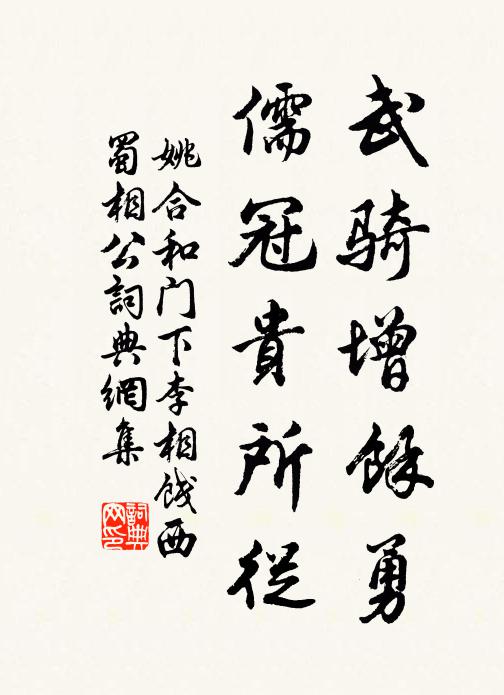 武骑增餘勇
儒冠貴所從
姚合和门下李相饯西
蜀相公詞典網集
詞典
网印